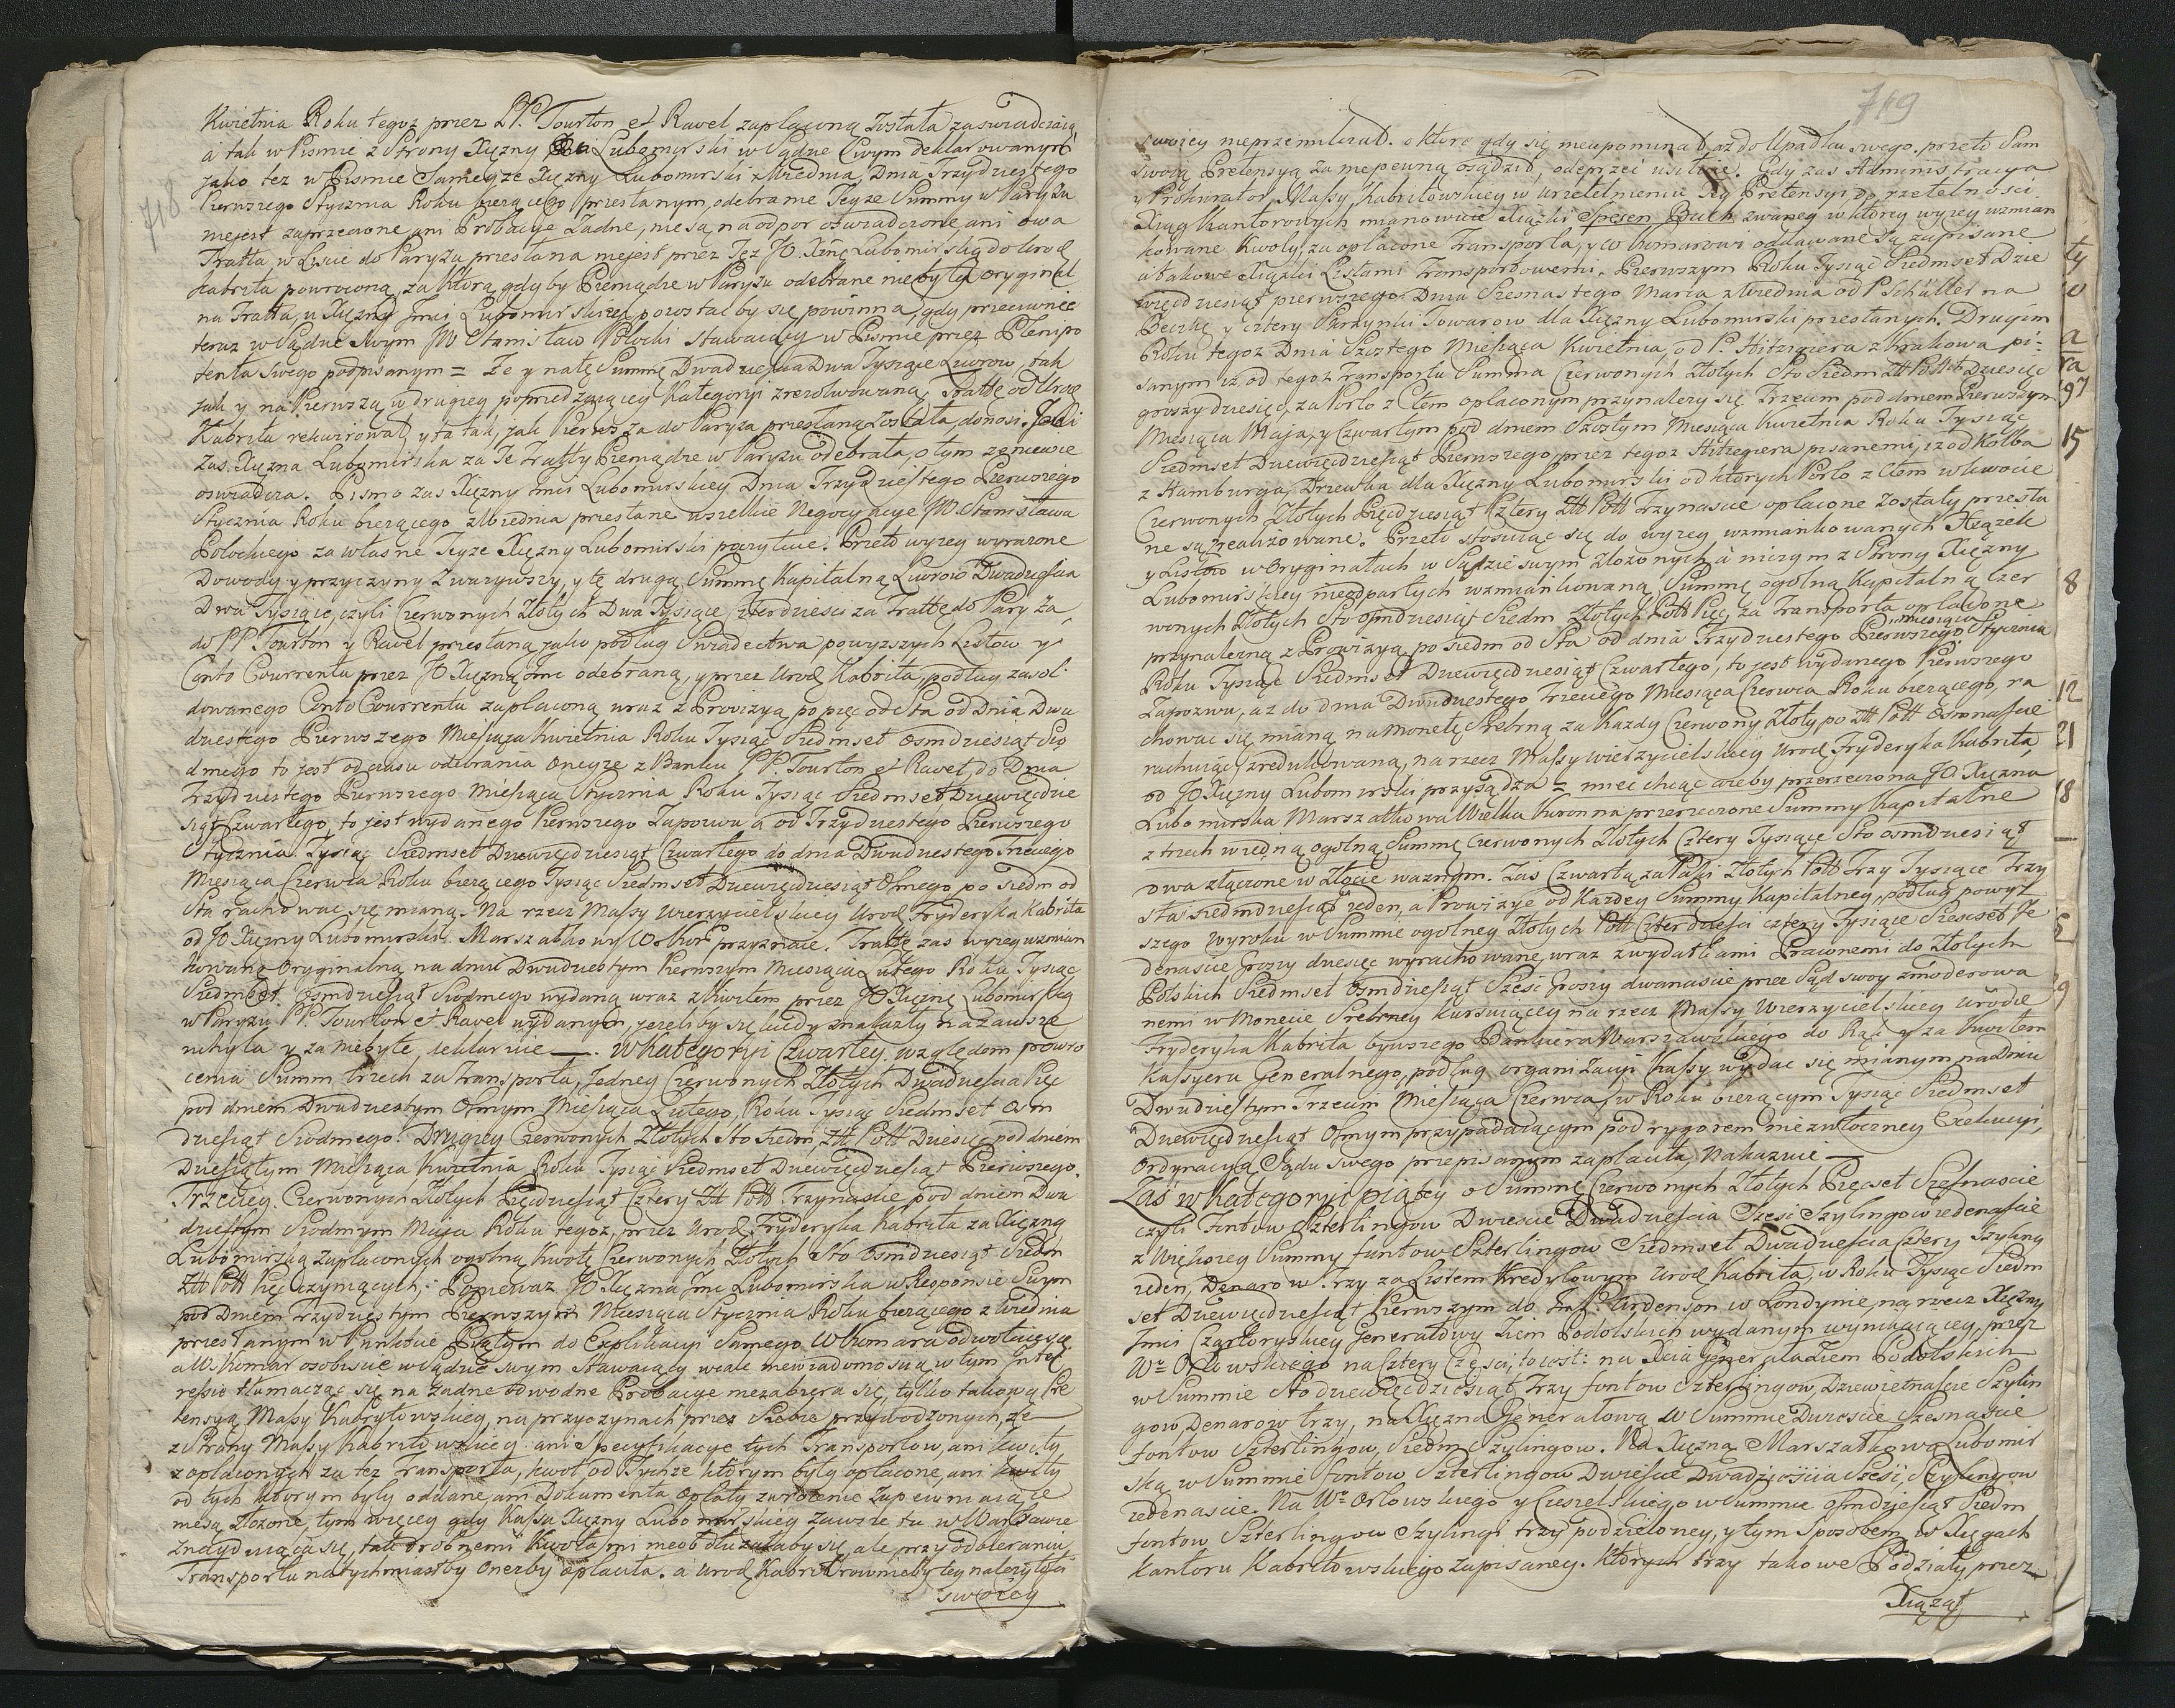 718
Kwietnia Roku tegoz przez PP. Tourton et Ravel zapłaconą została zaswiadczaią
a tak w Pismie z Strony Xięzny Lubomirski w Sądzie Swym deklarowanym
jako tez w Pismie Sameyze Xięzny Lubomirski z Wiednia, Dnia Trzydziestego
Pierwszego Stycznia Roku bierącego przesłanym, odebranie Teyze Summy w Paryżu
niejest zaprzeczone ani Probacye Zadne, niesą na odpor oswiadczone, ani owa
Tratta w Liscie do Paryza przesłana niejest przez Tęż JO. Xżnę Lubomirską do Urod
Kabryta powrocona, za którą gdyby Pieniądze w Paryżu odebrane niebyły oryginal
na Tratta, u Xięzny Jmci Lubomirskiey pozostać by się powinna, gdy przeciwnie
teraz w Sądzie Swym W Stanisław Potocki stawaiący w Pismie przez Plenipo
tenta Swego podpisanym = Ze y na tę Summę Dwadziescia Dwa Tysiące Liwrow, tak
jak y na Pierwszą w drugiey poprzedzaiącey Kategoryi zrezolwowaną, Trattę od Urod
Kabryta rekwirował, y ta tak, jak Pierwsza do Paryza przesłaną Została, donosi. Jezeli
Zas Xięzna Lubomirska za Te Tratty Pieniądze w Paryżu odebrała, o tym ze niewie
oswiadcza. Pismo zas Xięzny Jmci Lubomirskiey Dnia Trzydziestego Pierwszego
Stycznia Roku bierącego z Wiednia przesłane wszelkie Negocyacye W Stanisława
Potockiego za własne Teyze Xięzny Lubomirski poczytuie. Przeto wyzey wyrazone
Dowody y przyczyny Zwazywszy, y tę drugą Summę Kapitalną Liwrow Dwadziescia
Dwa Tysiące, czyli Czerwonych Złotych Dwa Tysiące Czterdziesci za Trattę do Paryża
do PP Tourton y Ravel przesłaną, jako podług Swiadectwa powyzszych Listow y
Conto Courrentu przez JO Xięznę Jmc odebraną, y przez Urod Kabryta, podług zasol
dowanego Conto Courrentu zapłaconą wraz z Prowizyą po pięc od Sta od Dnia Dwu
dziestego Pierwszego Miesiąca Kwietnia Roku Tysiąc Siedmset Osmdziesiąt Sio
dmego to jest od czasu odebrania oneyze z Banku PP. Tourton et Ravel, do Dnia
Trzydziestego Pierwszego Miesiąca Stycznia Roku Tysiąc Siedmset Dziewięćdzie
siąt Czwartego, to jest wydanego Pierwszego Zapozwu a od Trzydziestego Pierwszego
Stycznia Tysiąc Siedmset Dziewięćdziesiąt Czwartego do dnia Dwudziestego Trzeciego
Miesiąca Czerwca Roku bierącego Tysiąc Siedmset Dziewięćdziesiąt Osmego po siedm od
Sta rachować się mianą. Na rzecz Massy Wierzycielskiey Urod Fryderyka Kabryta
od JO Xięzny Lubomirski. Marszałkowy W Kor przyznaie. Trattę zas wyzey wzmian
kowaną Oryginalną na dniu Dwudziestym Pierwszym Miesiąca Lutego Roku Tysiąc
Siedmset Osmdziesiąt Siodmego wydaną wraz z Kwitem przez JO Xięznę Lubomirską
w Paryżu PP. Tourton et Ravel wydanym, jezeliby się kiedy znalazły na zawsze
uchyla y za niebyłe, deklaruie —. W kategoryi Czwartey względem powro
cenia Summ trzech za transporta, Jedney Czerwonych Złotych Dwadziescia Pięc
pod dniem Dwudziestym Osmym Miesiąca Lutego, Roku Tysiąc Siedmset Osm
dziesiąt Siodmego. Drugiey Czerwonych Złotych Sto Siedm, Złt Poll Dziesięć pod dniem
Dziesiątym Miesiąca Kwietnia Roku Tysiąc Siedmset Dziewięćdziesiąt Pierwszego.
Trzeciey Czerwonych Złotych Pięćdziesiąt Cztery Złt Poll Trzynascie pod dniem Dwu
dziestym Siodmym Maja Roku tegoz, przez Urod Fryderyka Kabryta za Xięznę
Lubomirską zapłaconych ogolną kwotę Czerwonych Złotych Sto Osmdziesiąt Siedm
Złt Poll Pięc czyniących. Poniewaz JO Xięzna Jmc Lubomirska w Responsie Swym
pod Dniem Trzydziestym Pierwszym Miesiąca Stycznia Roku bierącego z Wiednia
przesłanym w Punkcie Piątym do Explikacyi Samego W Komara odwołuiesię
a W. Komar osobiscie w Sądzie swym Stawaiący wcale niewiadomoscią w tym Inte
ressie tłumacząc się na zadne odwodne Probacye niezabiera się, tylko takową Pre
tensyą Massy Kabrytowskiey, na przyczynach przez Siebie przywodzonych, ze
z Strony Massy Kabrytowskiey ani Specyfikacye tych Transportow, ani kwity
zapłaconych za tez Transporta, kwot, od Tychze którym były opłacone, ani kwity
od tych ktorym były oddane, ani Dokumenta opłaty zwrocenie zapewniaiące
niesą złozone, tym więcey gdy Kassa Xięzny Lubomirskiey zawsze tu w Warszawie
znayduiąca się, tak drobnemi kwotami nieobdłuzałaby się, ale przy odbieraniu
Transportu natychmiastby onezby opłaciła. a Urod Kabryt rowniezby tey nalezytosci
swoiey
719
swoiey nieprzemilczał. o ktore gdy się nieupominał, az do Upadku swego. przeto Sam
Swoią Pretensyą za niepewną osądził, odeprzeć usiłuie. Gdy zas Administracya
y Prokurator, Massy, Kabrytowskiey w Urzetelnieniu Tey Pretensyi do rzetelnosci
Xiąg Kantorowych mianowicie Xiąszki Spesen Buch zwaney w którey wyzey wzmian
kowane Kwoty, za opłacone Transporta, y W. Komarowi oddawane są zapisane
a takowe Xiąszki Listami Transportowemi. Pierwszym Roku Tysiąc Siedmset Dzie
więćdziesiąt pierwszego Dnia Szesnastego Marca z Wiednia od P. Schuller na
Beczkę y cztery Skrzynki Towarow dla Xięzny Lubomirski przesłanych. Drugim
Roku tegoz Dnia Szóstego Miesiąca Kwietnia, od P. Hitzigiera z Krakowa pi:
sanym iz od tegoz transportu Summa Czerwonych Złotych Sto Siedm Złt Poll Dziesięć
groszy dziesięć, za Porto z Cłem opłaconym przynalezy się. Trzecim pod dniem Pierwszym
Miesiąca Maja, y Czwartym pod dniem Szóstym Miesiąca Kwietnia Roku Tysiąc
Siedmset Dziewięćdziesiąt Pierwszego, przez tegoz Hitzigiera pisanemi, iz od Kolba
z Hamburga, Drzewka dla Xięzny Lubomirski od których Porto z Cłem w kwocie
Czerwonych Złotych Pięćdziesiąt Cztery Złt Poll Trzynascie opłacone zostały przesła
ne są zrealizowane. Przeto stosuiąc się do wyzey wzmiankowanych Xiązek
y Listow w Oryginałach w Sądzie swym złożonych à niczym z Strony Xięzny
Lubomirskiey nieodpartych wzmiankowaną Summę ogolną Kapitalną Czer
wonych Złotych Sto Osmdziesiąt Siedm Złotych Poll Pięc, za Transporta opłacone
przynalezną z Prowizyą po siedm od Sta od dnia Trzydziestego Pierwszego miesiąca Stycznia
Roku Tysiąc Siedmset Dziewięćdziesiąt Czwartego, to jest wydanego Pierwszego
Zapozwu, az do dnia Dwudziestego Trzeciego Miesiąca Czerwca Roku bierącego, ra
chować się mianą na Monetę Srebrną za Kazdy Czerwony Złoty, po Złt Poll Osmnascie
rachuiąc, zredukowaną, na rzecz Massy Wierzycielskiey Urod Fryderyka Kabryta
od JO Xięzny Lubomirski przysądza = miec chcąc azeby przerzeczona JO. Xięzna
Lubomirska Marszałkowa Wielka Koronna przerzeczone Summy Kapitalne
z trzech w iedną ogolną Summę Czerwonych Złotych Cztery Tysiące Sto osmdziesiąt
dwa złączone w Złocie waznym. Zas Czwartą za Paki Złotych Poll Trzy Tysiące Trzy
sta siedmdziesiąt ieden, a Prowizye od Kazdey Summy Kapitalney, podług powyz
szego Wyroku w Summie ogolney Złotych Poll Czterdziesci cztery Tysiące Szescset Je
denascie Groszy dziesięc wyrachowane, wraz z wydatkami Prawnemi do Złotych
Polskich Siedmset Osmdziesiąt Szesc Groszy dwanascie przez Sąd swoy zmoderowa
nemi w Monecie Srebrney kursuiącey na rzecz Massy Wierzycielskiey Urodz
Fryderyka Kabryta bywszego Bankiera Warszawskiego do Rąk y za Kwitem
Kassyera Generalnego, podług organizacyi Kassy wydac się mianym na Dniu
Dwudziestym Trzecim Miesiąca Czerwca, w Roku bierącym Tysiąc Siedmset
Dziewięćdziesiąt Osmym przypadaiącym pod rygorem niezwłoczney Exekucyi
Ordynacyą Sądu Swego przepisanym zapłaciła, Nakazuie —
Zas w Kategoryi piątey o Summę Czerwonych Złotych Pięcset Szesnascie
czyli Funtow Szterlingow Dwiescie Dwadziescia Szesc Szylingow iedenascie
z Większey Summy funtow Szterlingow Siedmset Dwadziescia Cztery Szyling
ieden, Denarow Trzy za Listem Kredytowym Urod Kabryta, w Roku Tysiąc Siedm
set Dziewięćdziesiąt Pierwszym do Jmć P. Anderson w Londynie, na rzecz Xięzny
Jmci Czartoryskiey Generałowy Ziem Podolskich wydanym wynikaiącey, przez
Wo Orłowskiego na Cztery Częsci, to iest: na Xcia Generała Ziem Podolskich
w Summie Sto dziewięćdziesiąt Trzy funtow Szterlingow, Dziewiętnascie Szylin
gow Denarow trzy, na Xięznę Generałową w Summie Dwiescie Szesnascie
fontow Szterlingow, Siedm Szylingow. Na Xięznę Marszałkową Lubomir
ską w Summie fontow Szterlingow Dwiescie Dwadziescia Szesc, Szylingow
iedenascie. Na Wo Orłowskiego y Cieszelskiego w Summie osmdziesiąt Siedm
fontow Szterlingow Szylingi trzy podzieloney, y tym Sposobem w Xięgach
Kantoru Kabrytowskiego zapisaney. Których trzy takowe Podziały, przez
Xiążąt
ty
o
a
ra
97
15
8
12
21
18
5
9